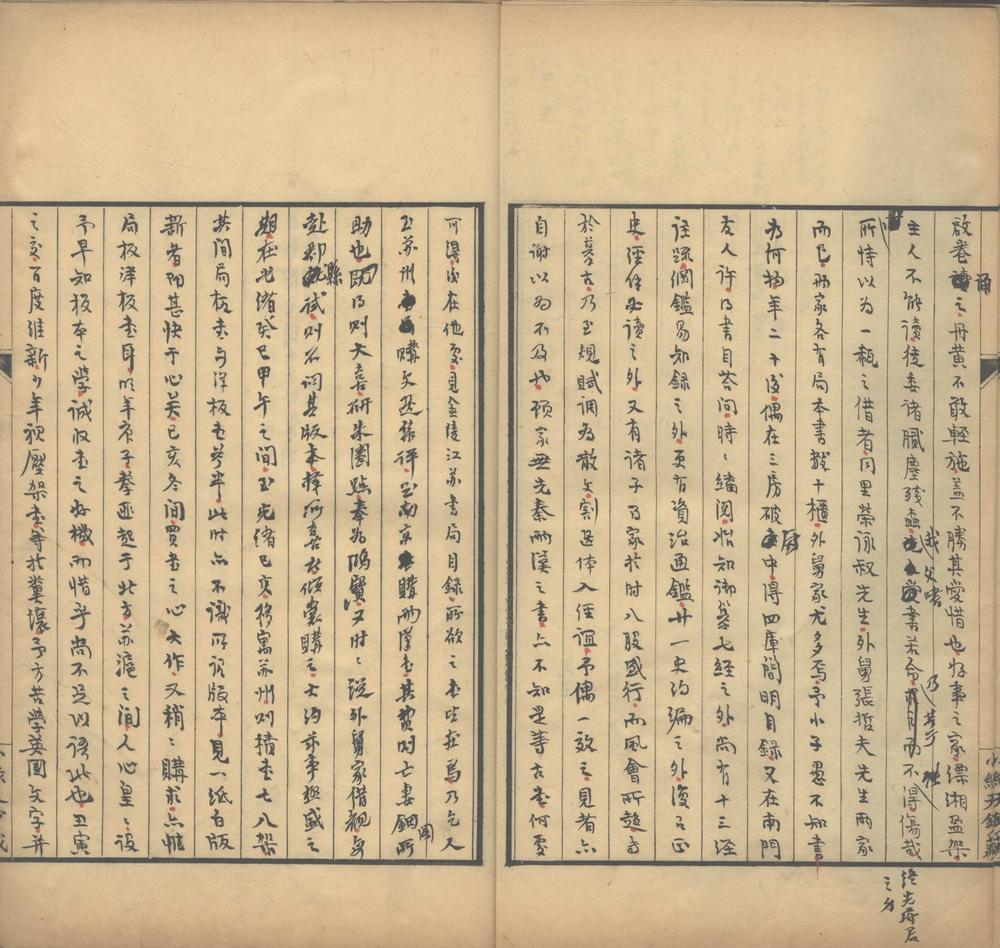 啟卷誦之丹黃不敢輕施蓋不勝其愛惜也好事之家縹湘盈架
主人不能讀徒委諸膩塵殘蟲愛書若命而不得傷哉
所恃以為一瓻之借者同里榮詠叔先生外舅張哲夫先生兩家
而已兩家各有局本書數十櫃外舅家尤多焉予小子愚不知書
為何物年二十後偶在三房破廚中得四庫簡明目錄又在南門
友人許得書目荅問時々繙閱始知御纂七經之外尚有十三經
註疏綱鑑易知錄之外更有資治通鑑廿一史約編之外復有正
史經傳必讀之外又有諸子百家於時八股盛行而風會所趨
於摹古乃至規賦調為散文割甚体入經誼予偶一效之見者亦
自謝以為不及也顧家無先秦兩漢之書亦不知是等古書何處
可得後在他處見金陵江蘇書局目錄所欲之書皆在焉乃乞人
至蘇州購文選集評至南京購兩漢書其費則亡妻鈿閣所
助也既得則大喜研朱圈點奉為鴻寶又時々從外舅家借觀每
赴郡縣試則不問其版本擇所喜者傾囊購之大約前事極盛之
期在光緒癸巳甲午之間至光緒己亥移寓蘇州則積書七八架
其間局板書与洋板書參半此時亦不識所謂版本見一紙白版
新者即甚快于心矣己亥冬間買書之心大作又稍々購求亦惟
局板洋板書耳明年庚子拳匪起于北方蘇滬之間人心皇々設
予早知板本之學誠收書之好機而惜乎尚不足以語此也丑寅
之交百度維新少年視壓架書等於糞壤予方苦學英國文字并
小綠天鈔藏